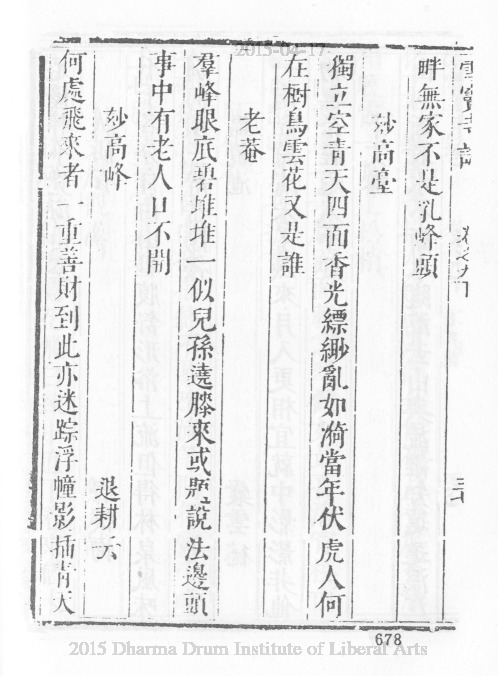 2015-04-17
雪竇寺誌 卷之九下 三七
畔無家不是乳峰頭
妙高臺
獨立空青天四面香光縹緲亂如漪當年伏虎人何
在樹鳥雲花又是誰
老菴
羣峰眼底碧堆堆一似兒孫遶膝來或題說法邊頭
事中有老人口不開
妙高峰 退耕云
何處飛來者一重善財到此亦迷踪浮幢影插青天
678
2015 Dharma Drum Institute of Liberal Arts